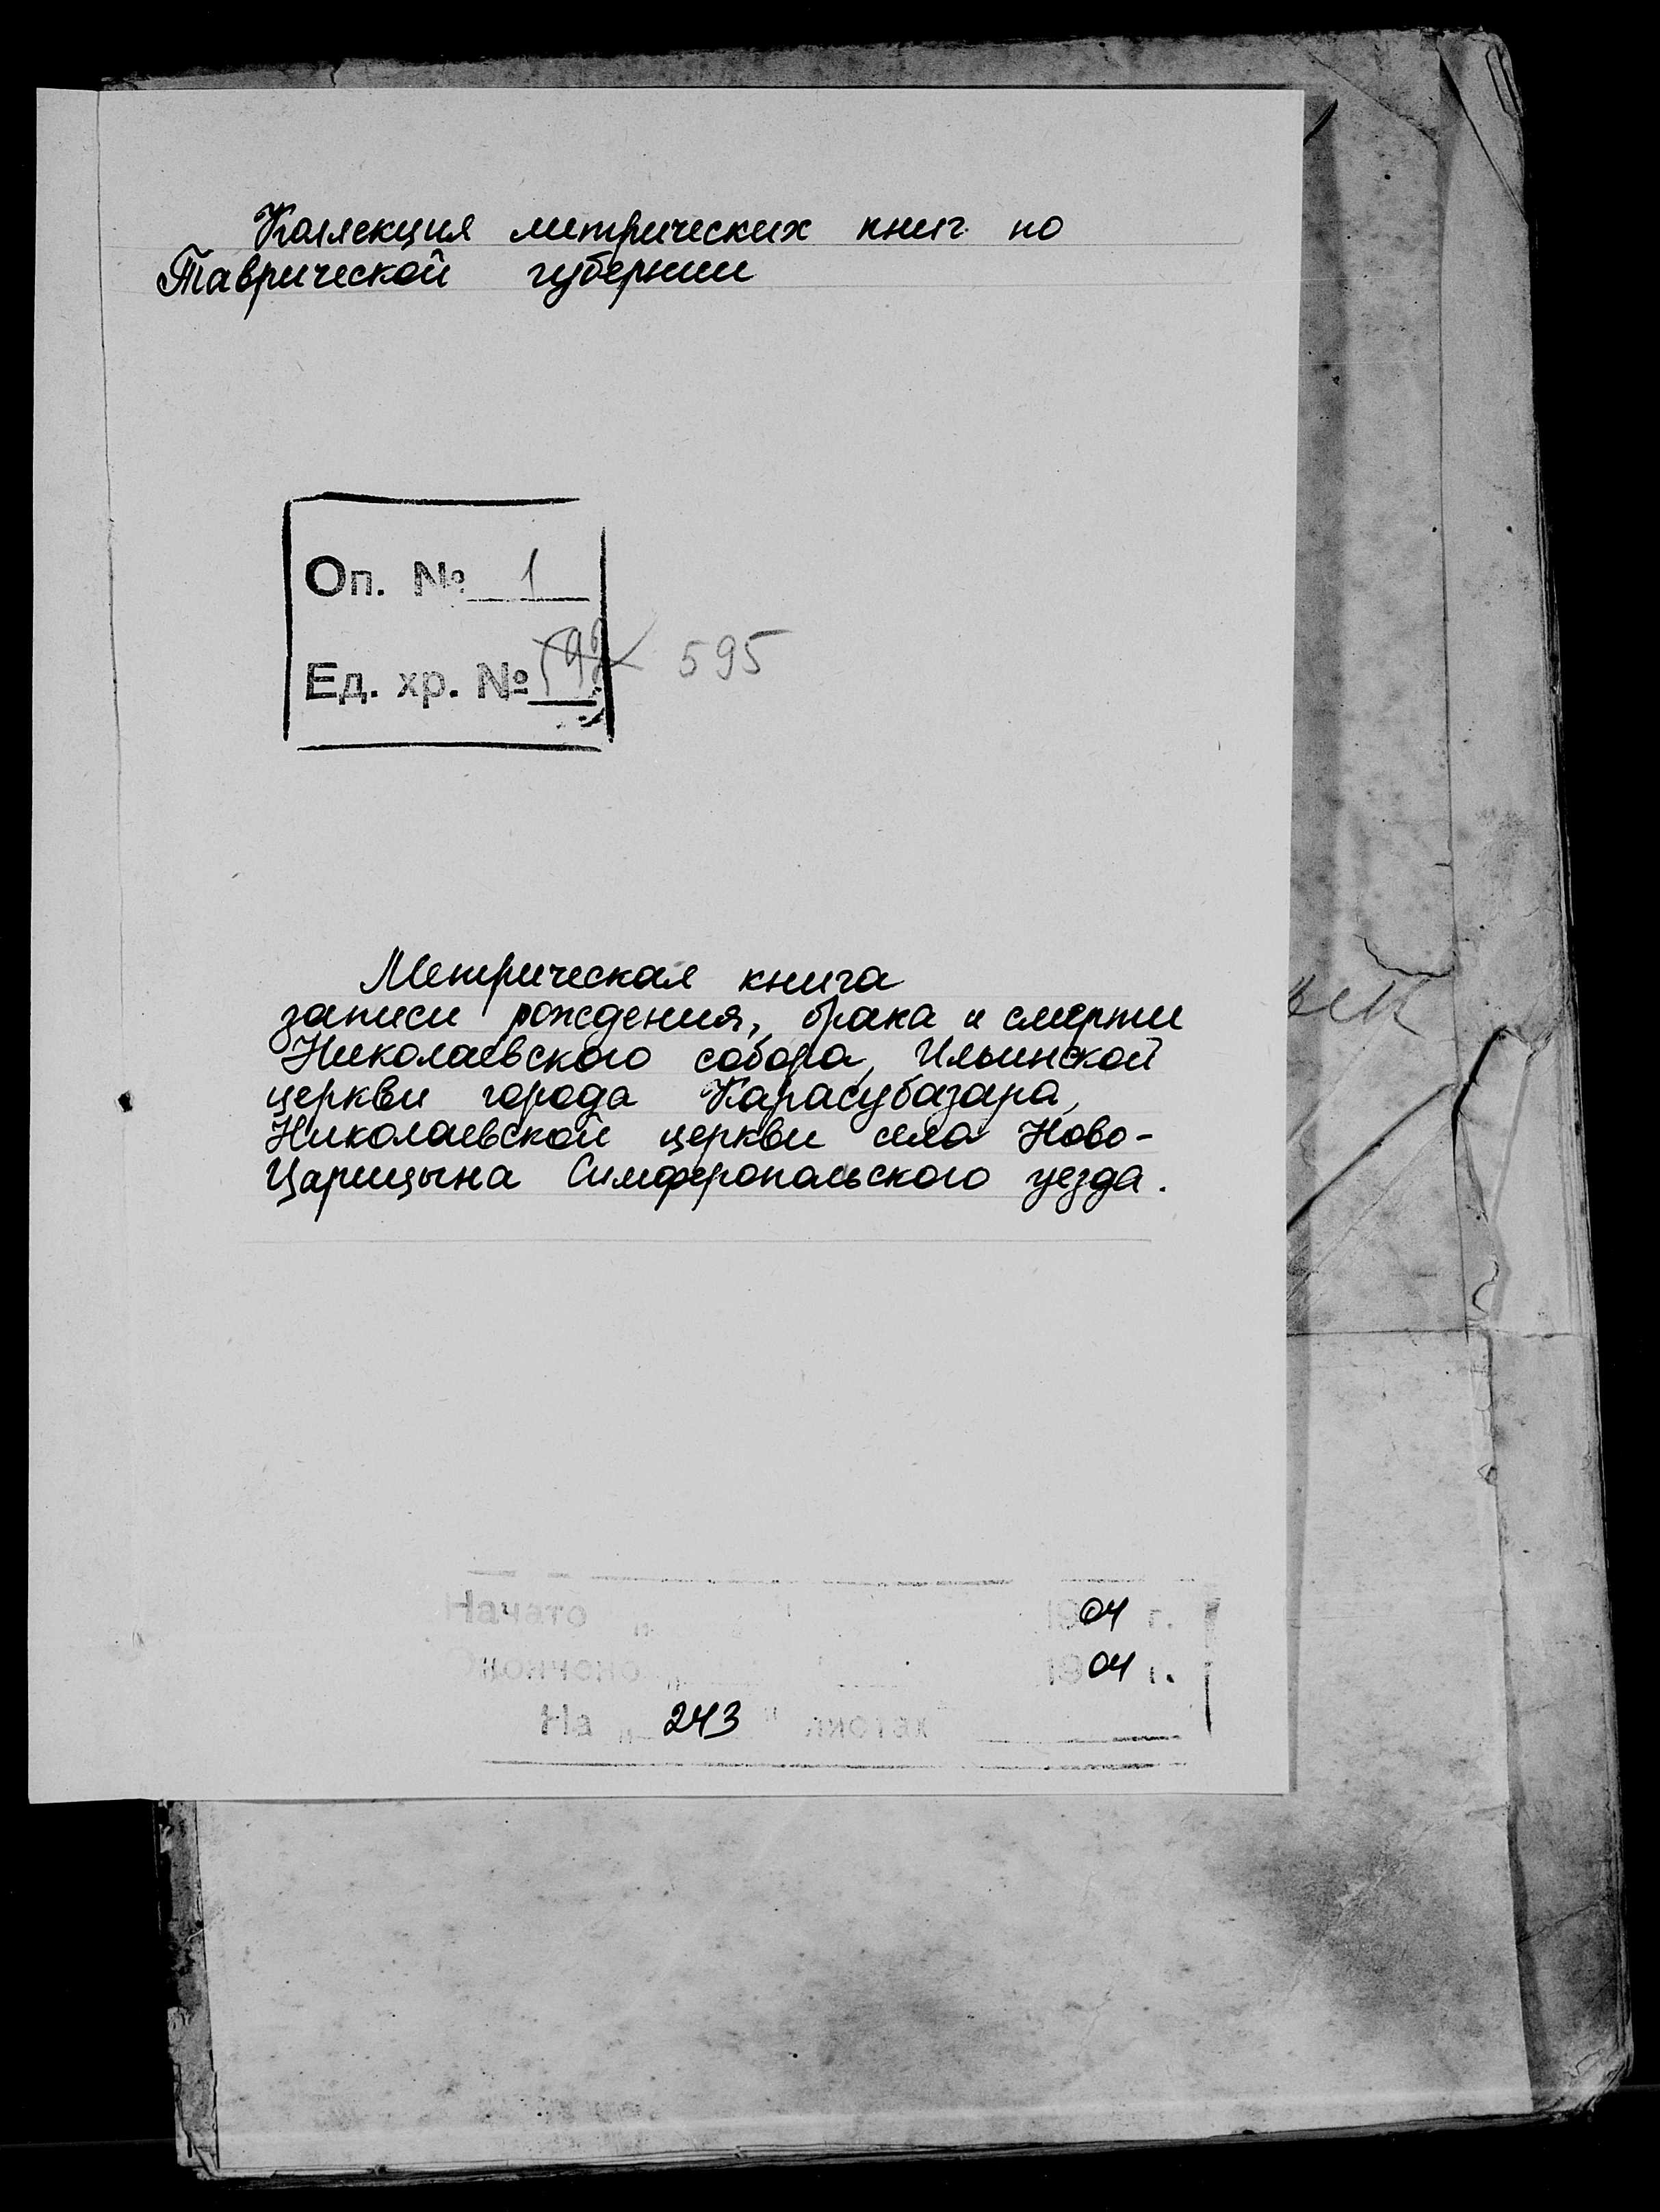 Коллекция метрических книг по
Таврической губернии
Оп. № 1
Ед. хр. № 595
Метрическая книга
записи рождения, брака и смерти
Николаевского собора, Ильинской
церкви города Карасубазара,
Николаевской церкви села Ново-
Царицына Симферопольского уезда.
Начато " " 1904 г.
Окончено " " 1904 г.
На " 243 " листах